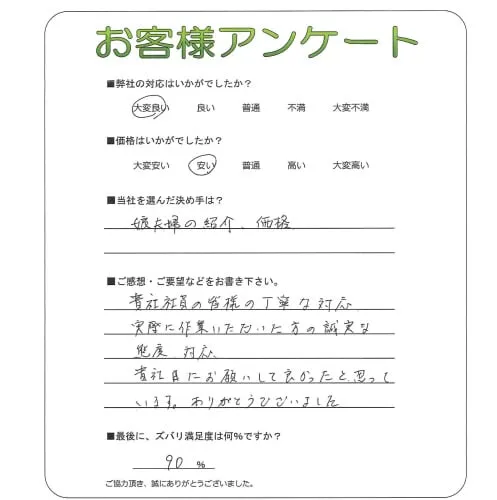 お客様アンケート
■弊社の対応はいかがでしたか？
大変良い 良い 普通 不満 大変不満
■価格はいかがでしたか？
大変安い 安い 普通 高い 大変高い
■当社を選んだ決め手は？
娘夫婦の紹介、価格
■ご感想・ご要望などをお書き下さい。
貴社社員の皆様の丁寧な対応
実際に作業いただいた方の誠実な
態度、対応
貴社にお願いして良かったと思って
います。ありがとうございました
■最後に、ズバリ満足度は何％ですか？
90 ％
ご協力頂き、誠にありがとうございました。